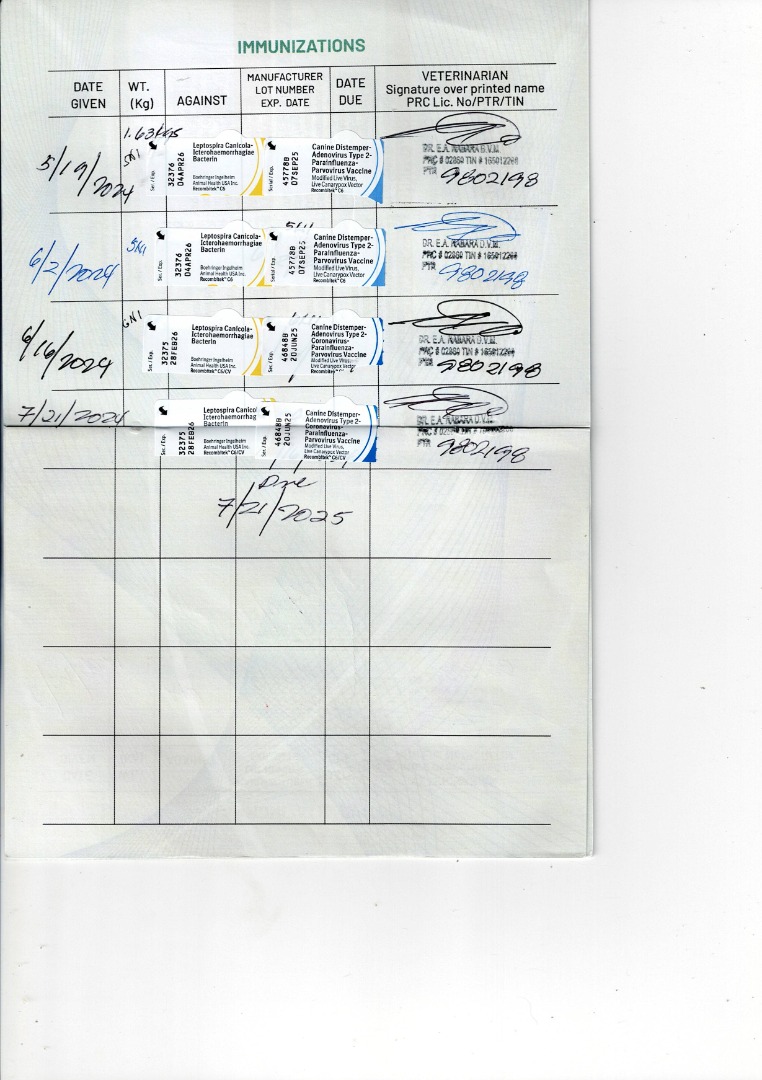 IMMUNIZATIONS
DATE GIVEN
WT. (Kg)
AGAINST
MANUFACTURER LOT NUMBER EXP. DATE
DATE DUE
VETERINARIAN
Signature over printed name
PRC Lic. No/PTR/TIN
5/19/2024
1.63kgs
5N1
Ser./Exp.
32376
04APR26
Leptospira Canicola-
Icterohaemorrhagiae
Bacterin
Boehringer Ingelheim
Animal Health USA Inc.
Recombitek® C6
Serial/Exp.
45778B
07SEP25
Canine Distemper-
Adenovirus Type 2-
Parainfluenza-
Parvovirus Vaccine
Modified Live Virus,
Live Canarypox Vector
Recombitek® C6
DR. E.A. RABARA D.V.M.
PRC # 02869 TIN #
PTR 9802198
6/2/2024
5N1
Ser./Exp.
32376
04APR26
Leptospira Canicola-
Icterohaemorrhagiae
Bacterin
Boehringer Ingelheim
Animal Health USA Inc.
Recombitek® C6
Serial/Exp.
45778B
07SEP25
Canine Distemper-
Adenovirus Type 2-
Parainfluenza-
Parvovirus Vaccine
Modified Live Virus,
Live Canarypox Vector
Recombitek® C6
DR. E.A. RABARA D.V.M.
PRC # 02869 TIN #
PTR 9802198
6/16/2024
6N1
Ser./Exp.
32375
28FEB26
Leptospira Canicola-
Icterohaemorrhagiae
Bacterin
Boehringer Ingelheim
Animal Health USA Inc.
Recombitek® C6/CV
Ser./Exp.
46848B
20JUN25
Canine Distemper-
Adenovirus Type 2-
Coronavirus-
Parainfluenza-
Parvovirus Vaccine
Modified Live Virus,
Live Canarypox Vector
Recombitek® C6/CV
DR. E.A. RABARA D.V.M.
PRC # 02869 TIN #
PTR 9802198
7/21/2024
Ser./Exp.
32375
28FEB26
Leptospira Canicol
Icterohaemorrhag
Bacterin
Boehringer Ingelheim
Animal Health USA Inc.
Recombitek® C6/CV
Ser./Exp.
46848B
20JUN25
Canine Distemper-
Adenovirus Type 2-
Coronavirus-
Parainfluenza-
Parvovirus Vaccine
Modified Live Virus,
Live Canarypox Vector
Recombitek® C6/CV
DR. E.A. RABARA D.V.M.
PTR 9802198
Due
7/21/2025